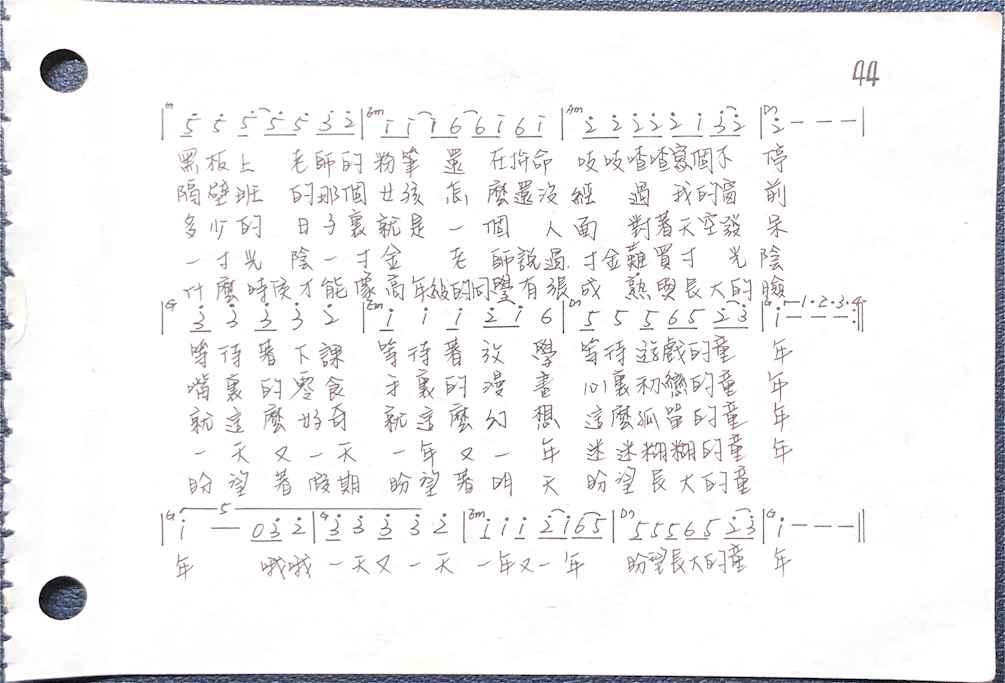 44
G 5 5 5 5 5 3 2 | Em 1 1 1 6 6 1 6 1 | Am 2 2 2 2 2 1 3 2 | D7 2 - - - |
黑板上 老師的粉筆 還 在拚命 吱吱喳喳寫個不 停
隔壁班 的那個女孩 怎 麼還沒經 過 我的窗 前
多少的 日子裏就是 一 個 人面 對著天空發 呆
一寸光 陰一寸金 老 師說過 寸金難買寸 光 陰
什麼時侯才能像高年級的同學有張成 熟與長大的臉
| G 3 3 3 3 2 | Em 1 1 1 2 1 6 | D7 5 5 5 6 5 2 3 | G 1 - - - :|| 1·2·3·4
等待著下課 等待著放 學 等待遊戲的童 年
嘴裏的零食 手裏的漫 畫 心裏初戀的童 年
就這麼好奇 就這麼幻 想 這麼孤單的童 年
一天又一天 一年又一 年 迷迷糊糊的童 年
盼望著假期 盼望著明 天 盼望長大的童
| G 5 1 - 0 3 2 | G 3 3 3 3 2 | Em 1 1 1 2 1 6 5 | D7 5 5 5 6 5 2 3 | G 1 - - - ||
年 哦哦一天又一天 一年又一年 盼望長大的童 年